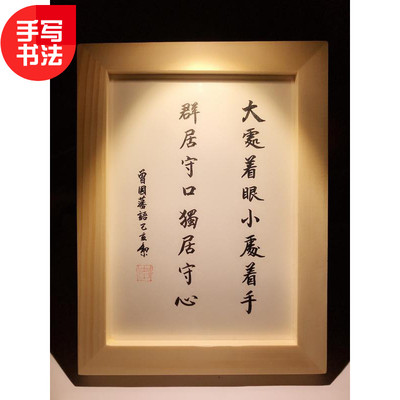 手写
书法
大處着眼小處着手
群居守口獨居守心
曾国藩語己亥